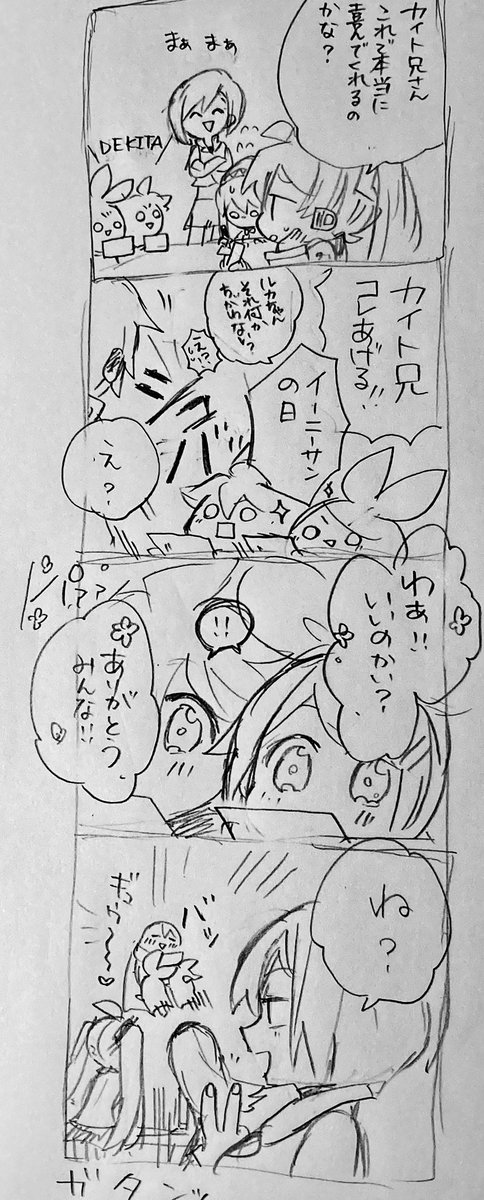 カイト兄さん
これで本当に
喜んでくれるの
かな？
まぁ まぁ
DEKITA
カイト兄
コレあげる!!
ルカちゃん
それ何か
ちがわない？
えっ!?
イーニーサン
の日
バ
え？
わぁ!!
いいのかい？
!!
ありがとう
みんな!!
ね？
バッ
ガタンッ